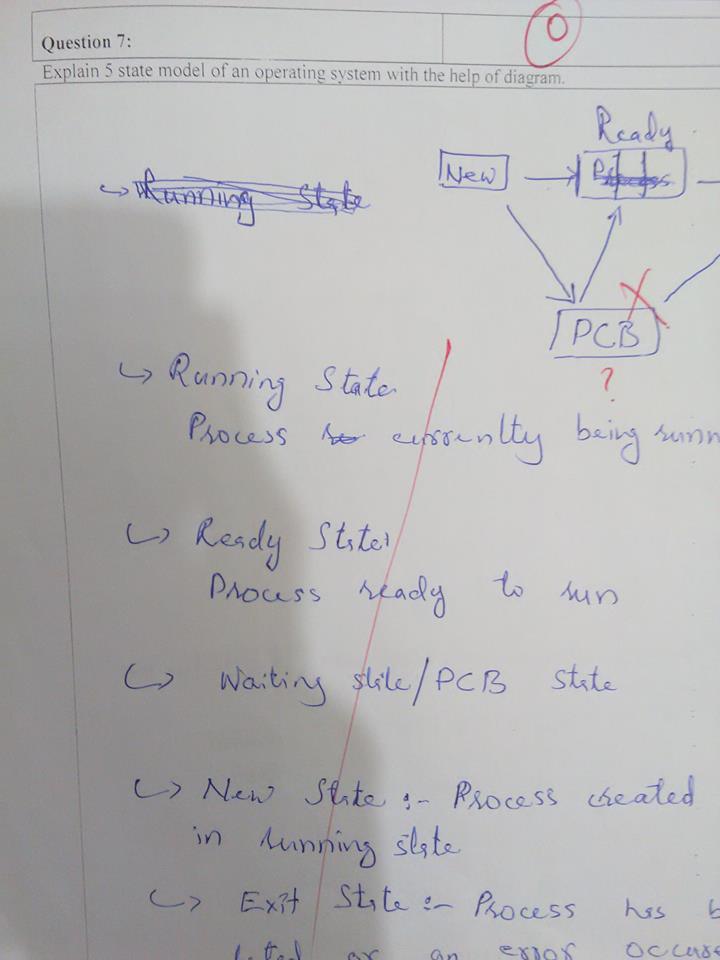 Question 7:
0
Explain 5 state model of an operating system with the help of diagram.
Ready
New
Process
Running State
PCB
?
Running State
Process currenlty being runn
Ready State
Process ready to run
Waiting state/PCB State
New State :- Process created
in running state
Exit State :- Process has b
or an error occurs